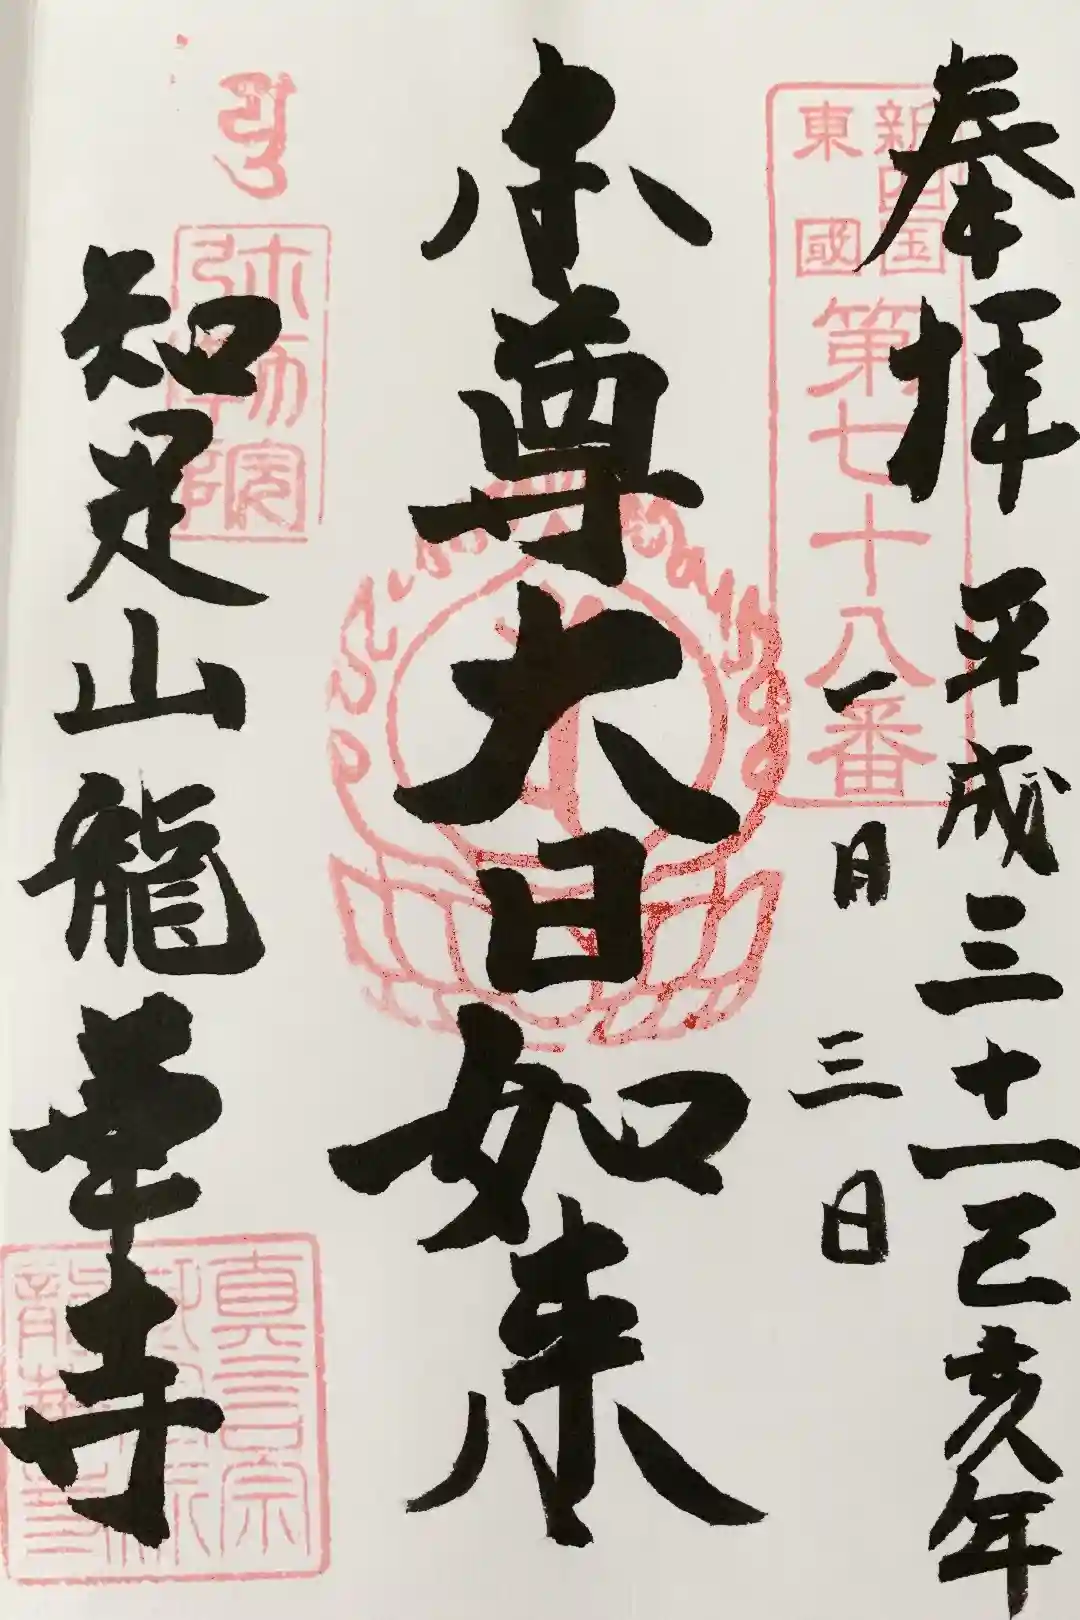 奉拝
平成三十一己亥年
一月三日
新四国
東國
第七十八番
本尊大日如来
弥勒院
知足山龍華寺
真言宗
龍華寺